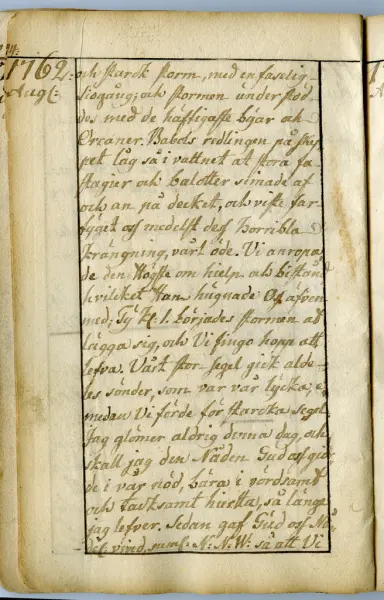 1762. och starck storm, med en faselig
Aug: siögång; och stormen understöd
des med de häftigaste bÿar och
Orcaner. Babols redlingen på skep
pet låg så i vattnet at stora fa
stagier och balotter simade af
och an på decket, och viste far
tÿget oss medelst dess horribla
krängning, vårt öde. Vi anropa
de den Högste om hielp och bistånd
hvilcket Han hugnade Oss äfven
med; Tÿ Kl. 1. börjades stormen at
lägga sig, och Vi fingo hopp att
lefva. Vårt stor segel gick alde
les sönder, som var vår lÿcka, e,
medan Vi förde för starcka segel.
Jag glömer aldrig denna dag, och
skall jag den Nåden Gud oss gior
de i vår nöd, bära i vördsamt
och tacksamt hierta, så länge
jag lefver. Sedan gaf Gud oss Må
del: vind, neml: N: N. W: så att Vi